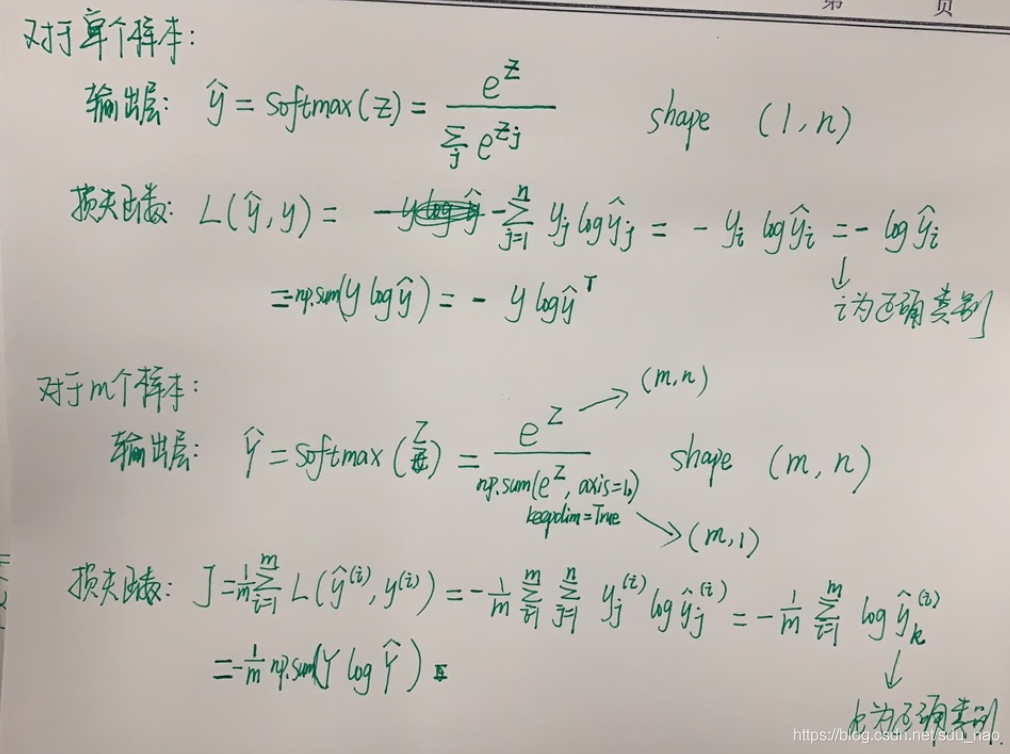 第 页
对于单个样本:
输出层: ŷ = softmax(z) = e^z / Σ_j e^{z_j} shape (1, n)
损失函数: L(ŷ, y) = -Σ_{j=1}^{n} y_j log ŷ_j = - y_i log ŷ_i = - log ŷ_i
= -np.sum(y log ŷ) = - y log ŷ^T
i为正确类别
对于m个样本:
输出层: Ŷ = softmax(Z) = e^Z / np.sum(e^Z, axis=1, keepdim=True) shape (m, n)
→ (m, n)
→ (m, 1)
损失函数: J = 1/m Σ_{i=1}^{m} L(ŷ^{(i)}, y^{(i)}) = - 1/m Σ_{i=1}^{m} Σ_{j=1}^{n} y_j^{(i)} log ŷ_j^{(i)} = - 1/m Σ_{i=1}^{m} log ŷ_k^{(i)}
= - 1/m np.sum(Y log Ŷ)
k为正确类别.
https://blog.csdn.net/sdu_hao